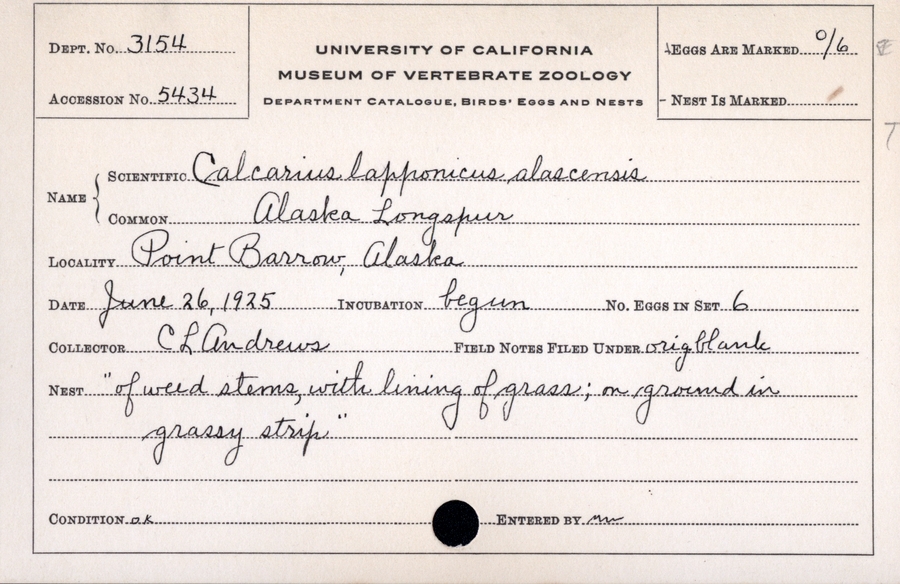 DEPT. NO. 3154
ACCESSION NO. 5434
UNIVERSITY OF CALIFORNIA
MUSEUM OF VERTEBRATE ZOOLOGY
DEPARTMENT CATALOGUE, BIRDS' EGGS AND NESTS
EGGS ARE MARKED 0/6
NEST IS MARKED
E
T
NAME { SCIENTIFIC Calcarius lapponicus alascensis
COMMON Alaska Longspur
LOCALITY Point Barrow, Alaska
DATE June 26, 1925 INCUBATION begun NO. EGGS IN SET 6
COLLECTOR C L Andrews FIELD NOTES FILED UNDER orig blank
NEST "of weed stems, with lining of grass; on ground in
grassy strip"
CONDITION ok ENTERED BY